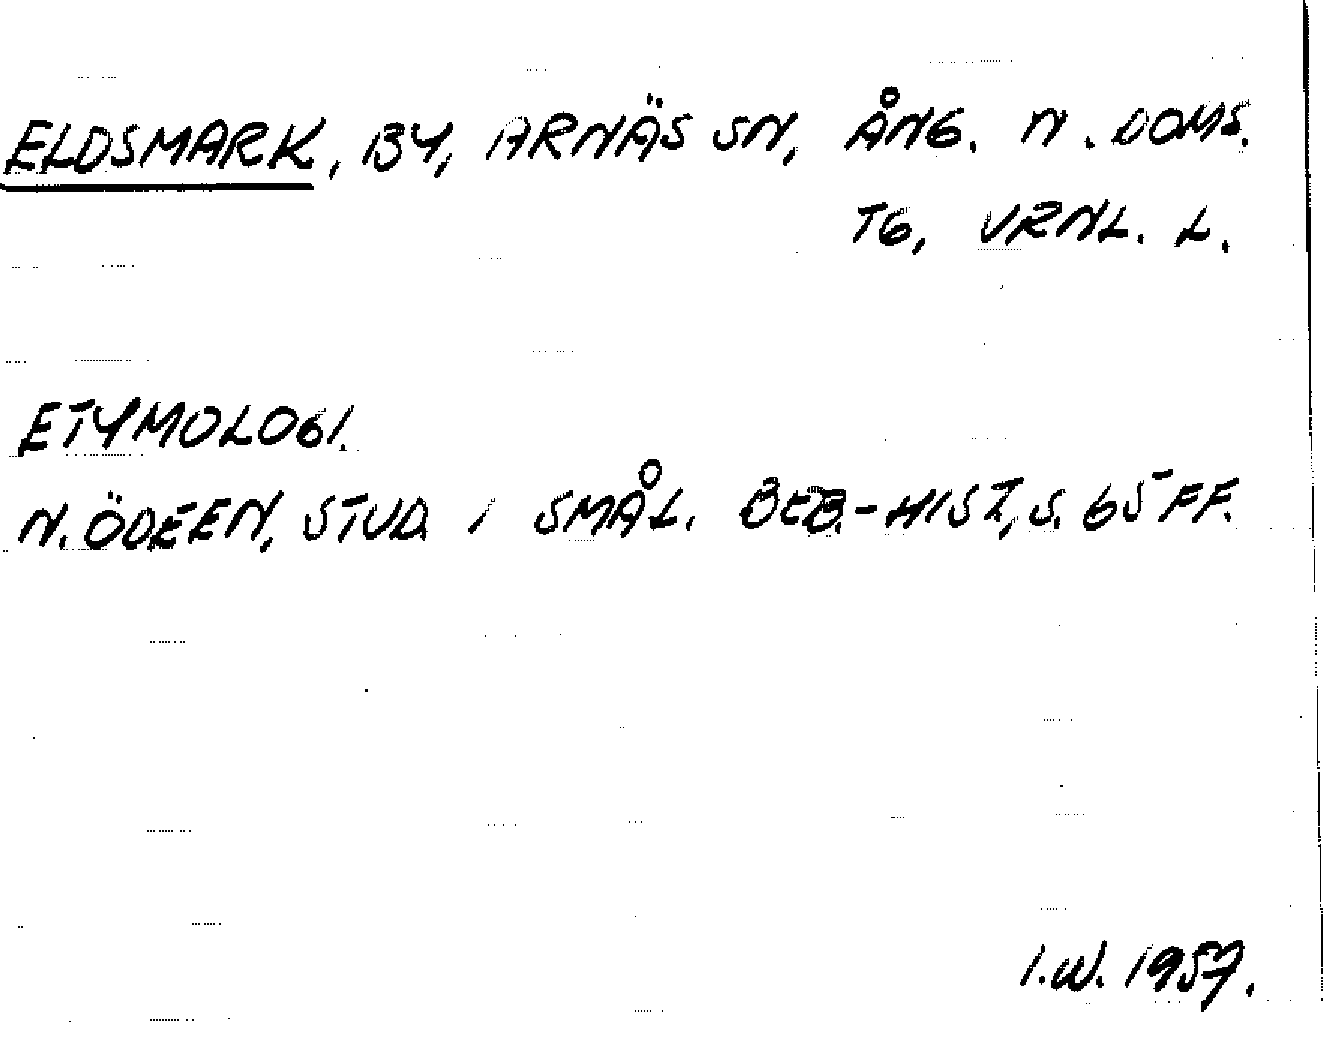 ELDSMARK, BY, ARNÄS SN, ÅNG. N. DOMS.
TG, VRNL. L.
ETYMOLOGI.
N. ÖDEEN, STUD. I SMÅL. BEB.-HIST., S. 65 FF.
I.W. 1957.